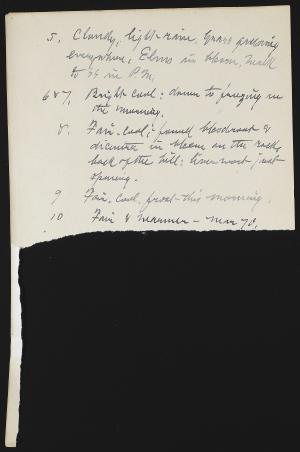 5. Cloudy, light rain. Grass growing
everywhere, Elms in bloom,
to 54 in P.M.
6 & 7, Bright cool: down to freezing in
the morning.
8. Fair. cool; found bloodroot &
dicentra in bloom on the rocks
back of the hill; liverwort just
opening.
9 Fair, cool, frost this morning.
10 Fair & warmer – Max 70.